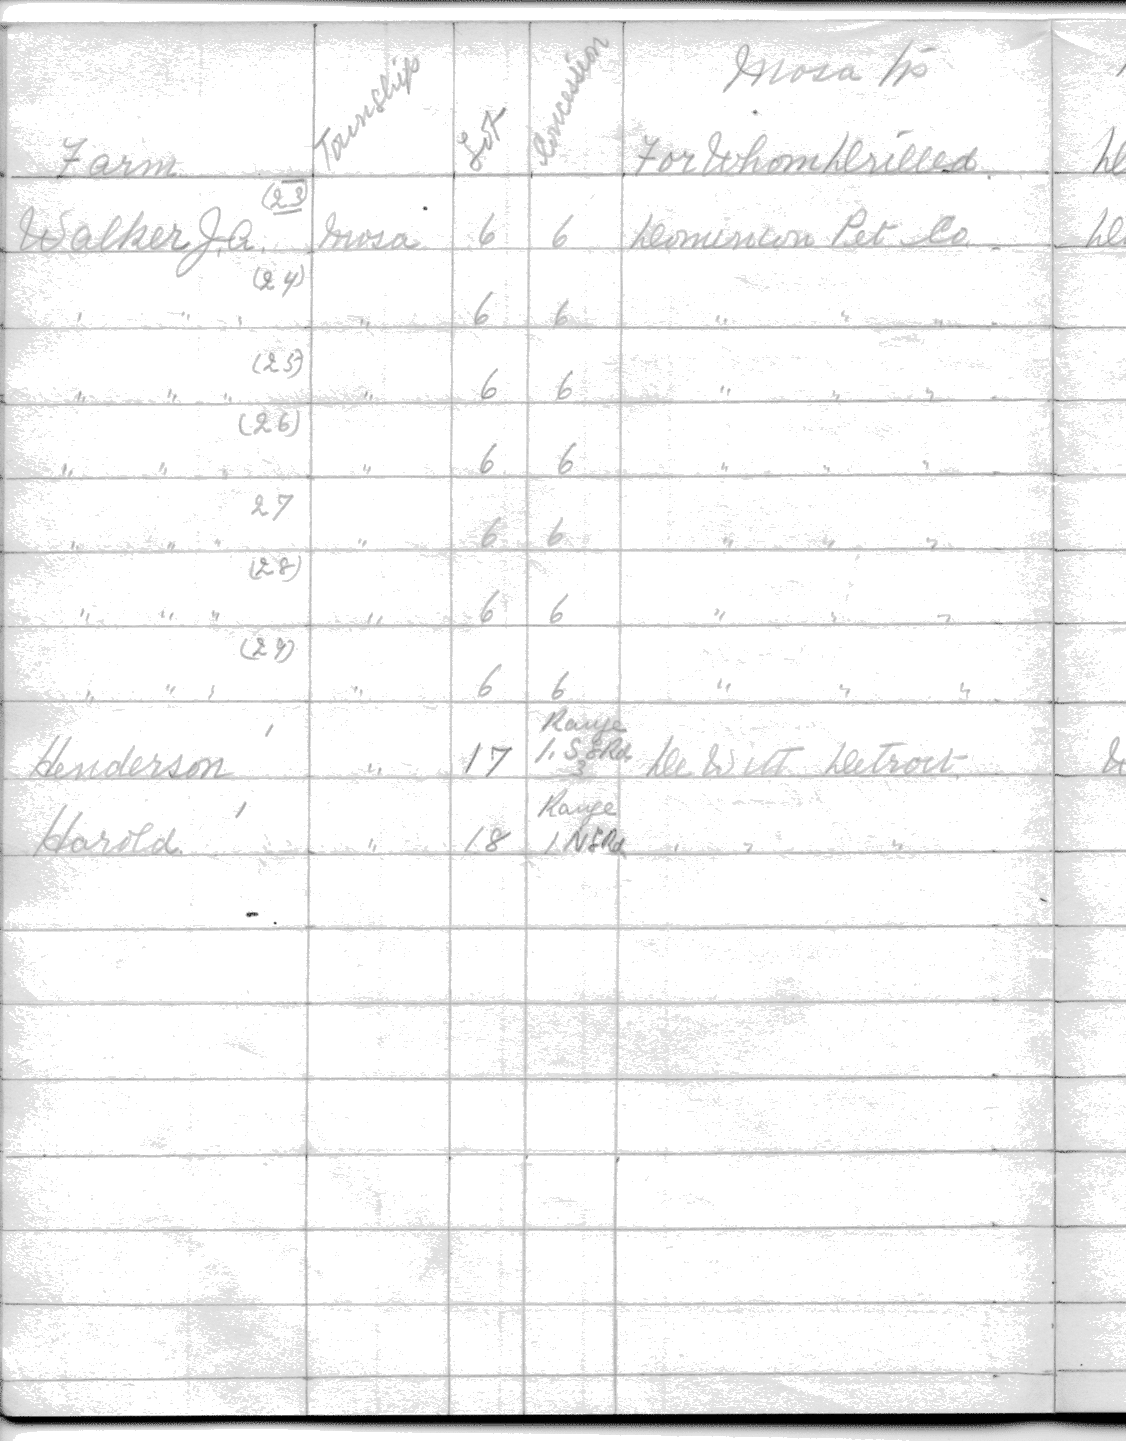 Mosa Tp
Farm Township Lot Concession For Whom Drilled
(23)
Walker J.A. Mosa 6 6 Dominion Pet Co.
(24)
" " " " 6 6 " " "
(25)
" " " " 6 6 " " "
(26)
" " " " 6 6 " " "
27
" " " " 6 6 " " "
(28)
" " " " 6 6 " " "
(29)
" " " " 6 6 " " "
Range
Henderson 1 " 17 1. S L Rd. De Witt Detroit
Range
Harold 1 " 18 1 N L Rd " " "